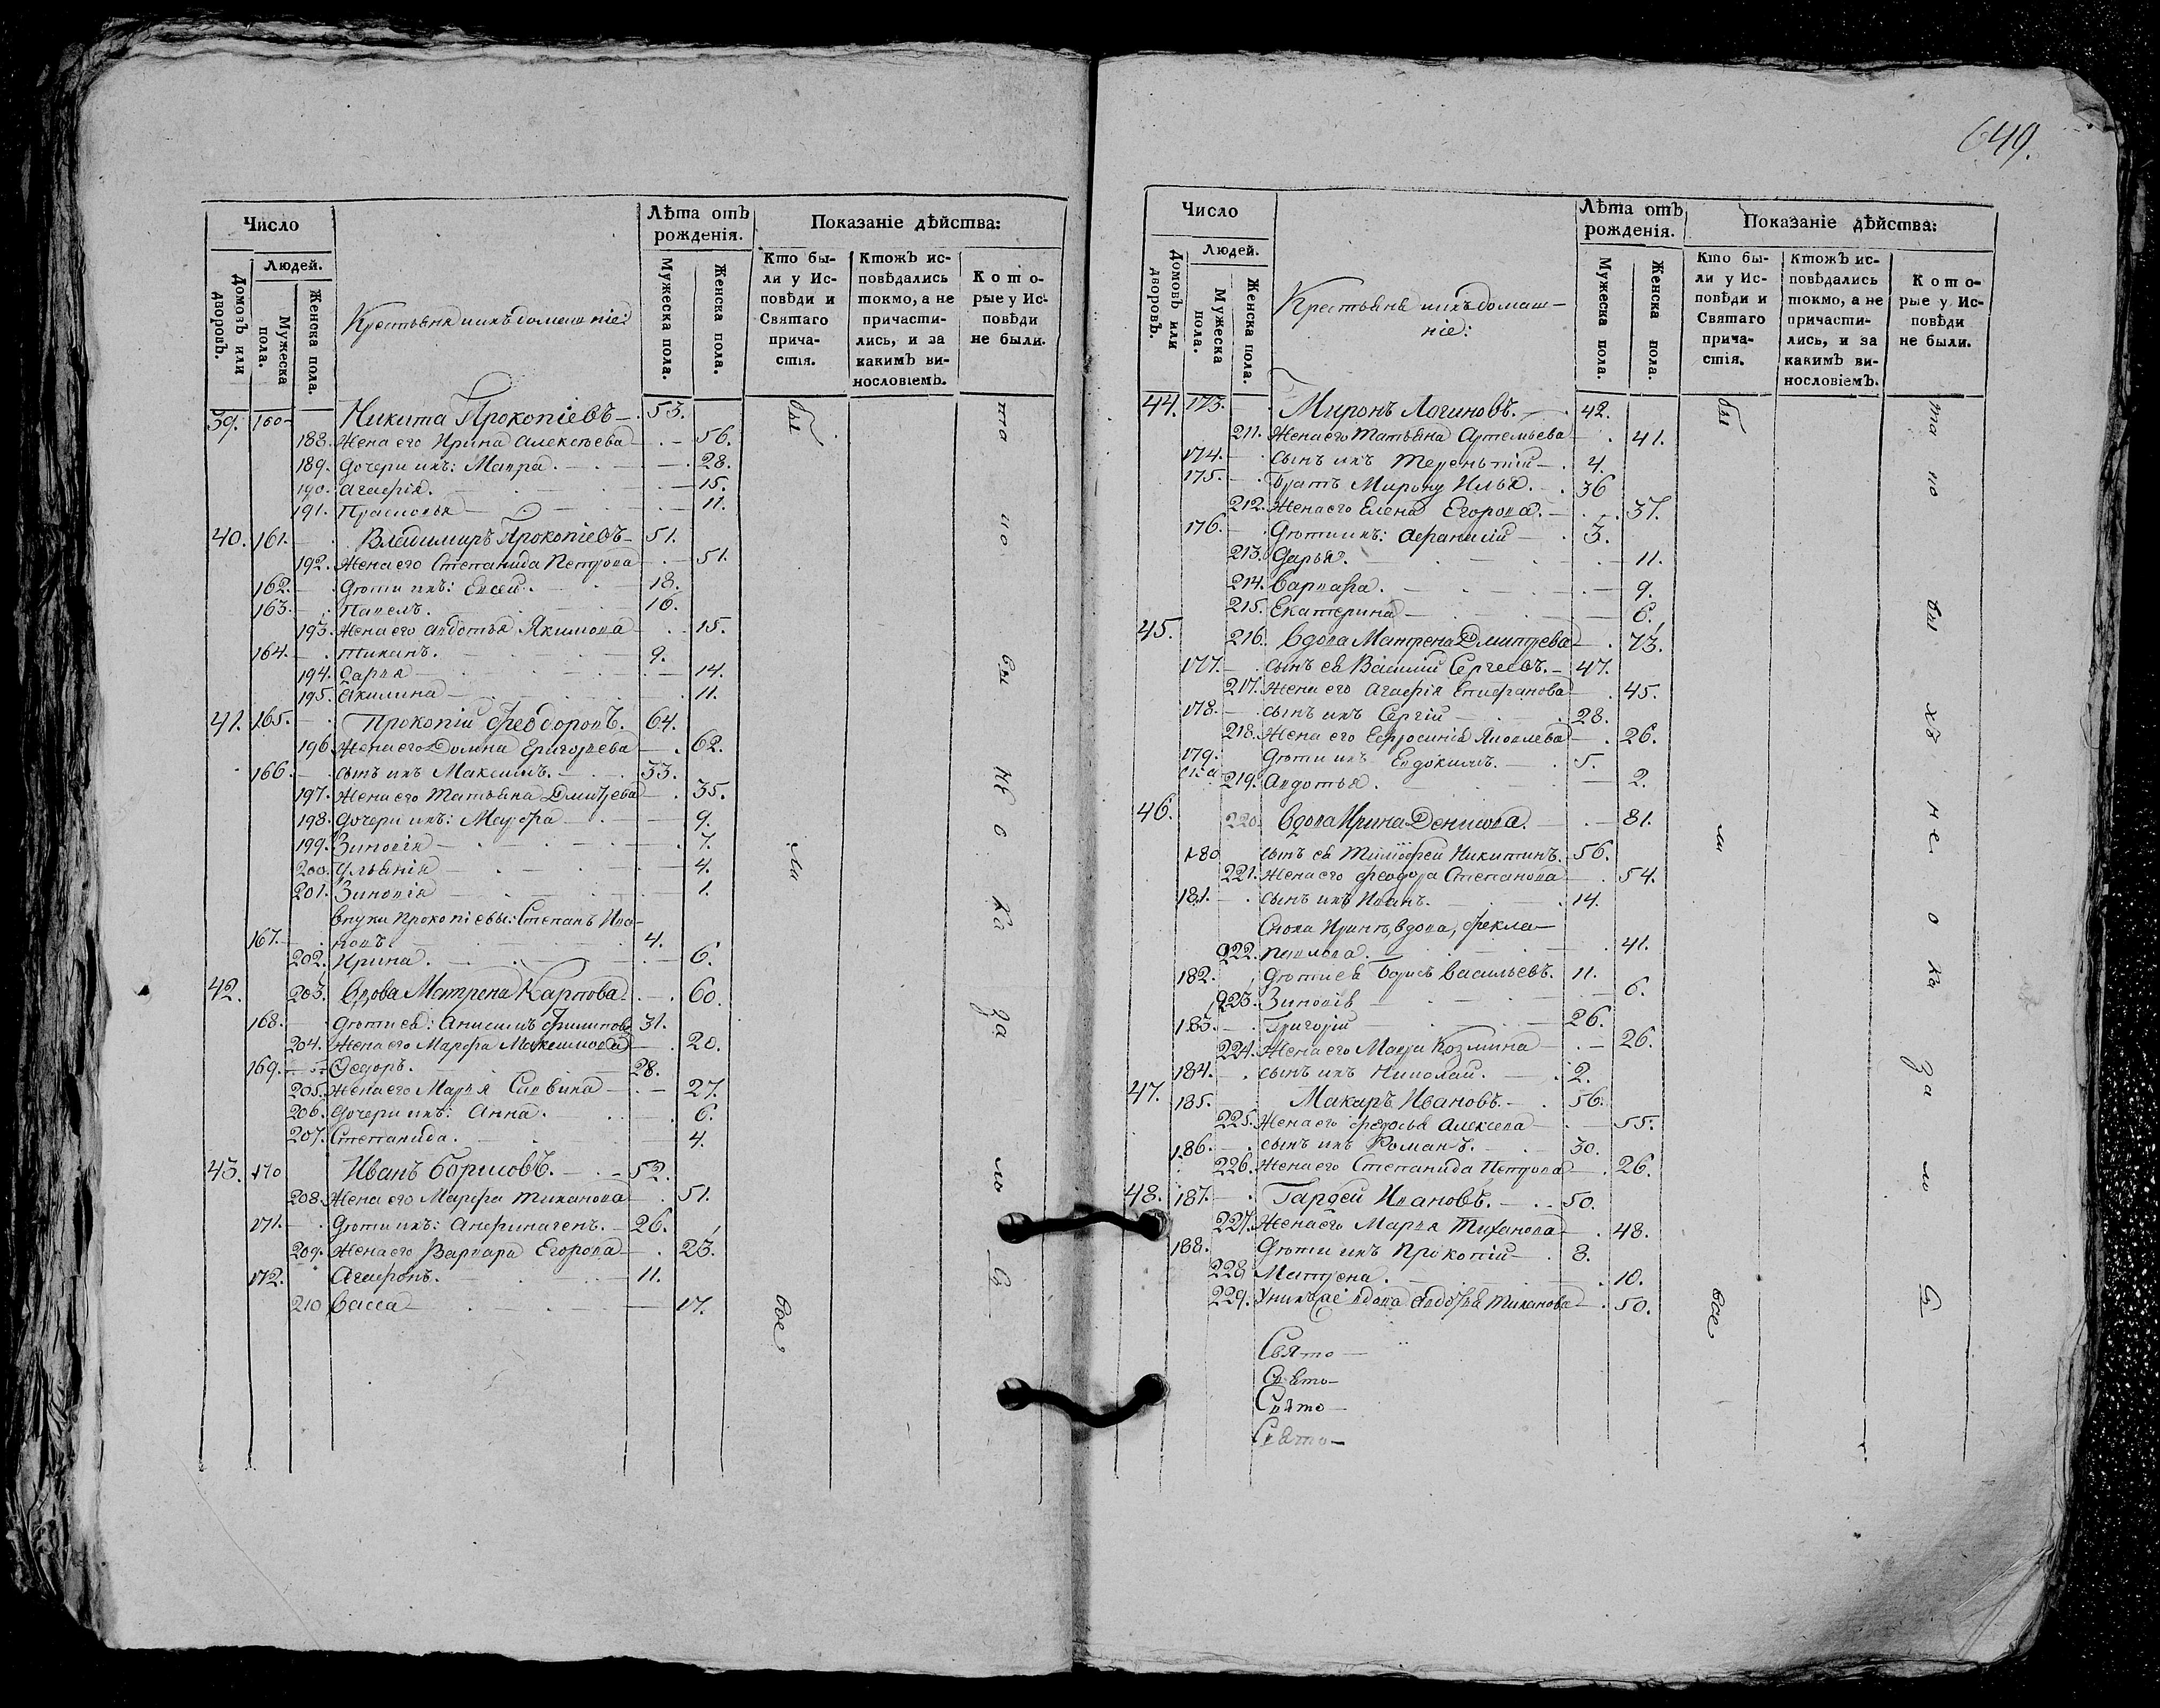 Число
Людей.
Домовъ или дворовъ.
Мужеска пола.
Женска пола.
Крестьяне и ихъ домашніе:
Лѣта отъ рожденія.
Мужеска пола.
Женска пола.
Показаніе дѣйства:
Кто были у Исповѣди и Святаго причастія.
Ктожъ исповѣдались токмо, а не причастились, и за какимъ винословіемъ.
Которые у Исповѣди не были.
39. 160 Никита Прокопіевъ 53.
188. Жена его Ирина Алексѣева 56.
189. Дочери ихъ: Мавра 28.
190. Агафія. 15.
191. Прасковья 11.
40. 161. Владимиръ Прокопіевъ 51.
192. Жена его Степанида Петрова 51.
162. Дѣти ихъ: Евсей. 18.
163. Павелъ. 16.
193. Жена его Авдотья Якимова 15.
164. Тиханъ. 9.
194. Дарья 14.
195. Акилина 11.
41. 165. Прокопій Феодоровъ. 64.
196. Жена его Домна Григорьева 62.
166. сынъ ихъ Максимъ. 33.
197. Жена его Татьяна Дмитрева 35.
198. Дочери ихъ: Марфа 9.
199. Зиновія 7.
200. Ульянія 4.
201. Зиновія 1.
Внуки Прокопіевы: Степанъ Ива-
167. новъ. 4.
202. Ирина. 6.
42. 203. Вдова Матрена Карпова 60.
168. Дѣти ея: Анисимъ Филиповъ 31.
204. Жена его Марфа Максимова 20.
169. Федоръ. 28.
205. Жена его Марья Савина 27.
206. Дочери ихъ: Анна. 6.
207. Степанида. 4.
43. 170 Иванъ Борисовъ. 52.
208. Жена его Марфа Тиханова 51.
171. Дѣти ихъ: Анфиногенъ. 26.
209. Жена его Варвара Егорова 23.
172. Агафонъ. 11.
210 Васса 17.
бы
ли
все
то
по
бы
не
о
ка
за
ло
съ
649.
Число
Людей.
Домовъ или дворовъ.
Мужеска пола.
Женска пола.
Крестьяне и ихъ домаш-
ніе:
Лѣта отъ рожденія.
Мужеска пола.
Женска пола.
Показаніе дѣйства:
Кто были у Исповѣди и Святаго причастія.
Ктожъ исповѣдались токмо, а не причастились, и за какимъ винословіемъ.
Которые у Исповѣди не были.
44. 173. Миронъ Логиновъ. 42.
211. Жена его Татьяна Артемьева 41.
174. сынъ ихъ Терентій 4.
175. Братъ Мирону Илья. 36
212. Жена его Елена Егорова. 37.
176. Дѣти ихъ: Афанасій 3.
213. Дарья. 11.
214. Варвара. 9.
215. Екатерина 6.
45. 216. Вдова Матрена Дмитрева 73.
177. сынъ ея Василій Сергеевъ. 47.
217. Жена его Агафія Епифанова 45.
178. сынъ ихъ Сергій 28.
218. Жена его Ефросинія Яковлева 26.
179. Дѣти ихъ Евдокимъ. 5.
219. Авдотья. 2.
46. 220. Вдова Ирина Денисова. 81.
180 сынъ ея Тимофей Никитинъ. 56.
221. Жена его Феодора Степанова 54.
181. сынъ ихъ Иванъ. 14.
Сноха Иринѣ, вдова, Фекла
222. Павлова. 41.
182. Дѣти ея Борисъ Васильевъ. 11.
223. Зиновія 6.
183. Григорій 26.
224. Жена его Марья Козмина 26.
184. сынъ ихъ Николай. 2.
47. 185. Макаръ Ивановъ. 56.
225. Жена его Федосья Алексева 55.
186. сынъ ихъ Романъ. 30.
226. Жена его Степанида Петрова 26.
48. 187. Гардей Ивановъ. 50.
227. Жена его Марья Тиханова 48.
188. Дѣти ихъ Прокопій 8.
228 Матрена. 10.
229. У нихъ же вдова Авдотья Тиханова 50.
Свято
Свято
Свято
Свято
бы
ли
все
то
по
бы
хъ
не
о
ка
за
ло
съ